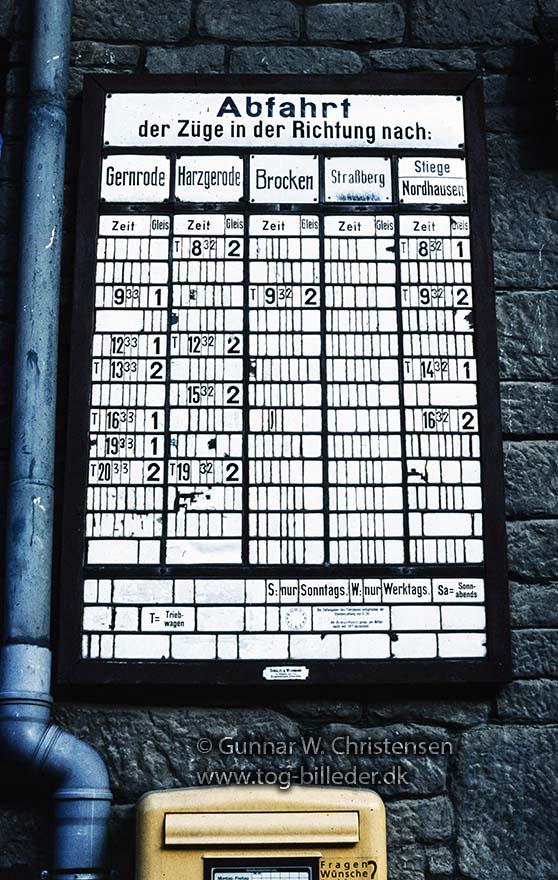 Abfahrt
der Züge in der Richtung nach:
Gernrode Harzgerode Brocken Straßberg Stiege
Nordhausen
Zeit Gleis Zeit Gleis Zeit Gleis Zeit Gleis Zeit Gleis
T 8 32 2 T 8 32 1
9 33 1 T 9 32 2 T 9 32 2
12 33 1 T 12 32 2
T 13 33 2 T 14 32 1
15 32 2
T 16 33 1 16 32 2
T 19 33 1
T 20 33 2 T 19 32 2
S: nur Sonntags. W: nur Werktags. Sa= Sonn-
abends
T= Trieb-
wagen
© Gunnar W. Christensen
www.tog-billeder.dk
Fragen
Wünsche ?
Montag-Freitag